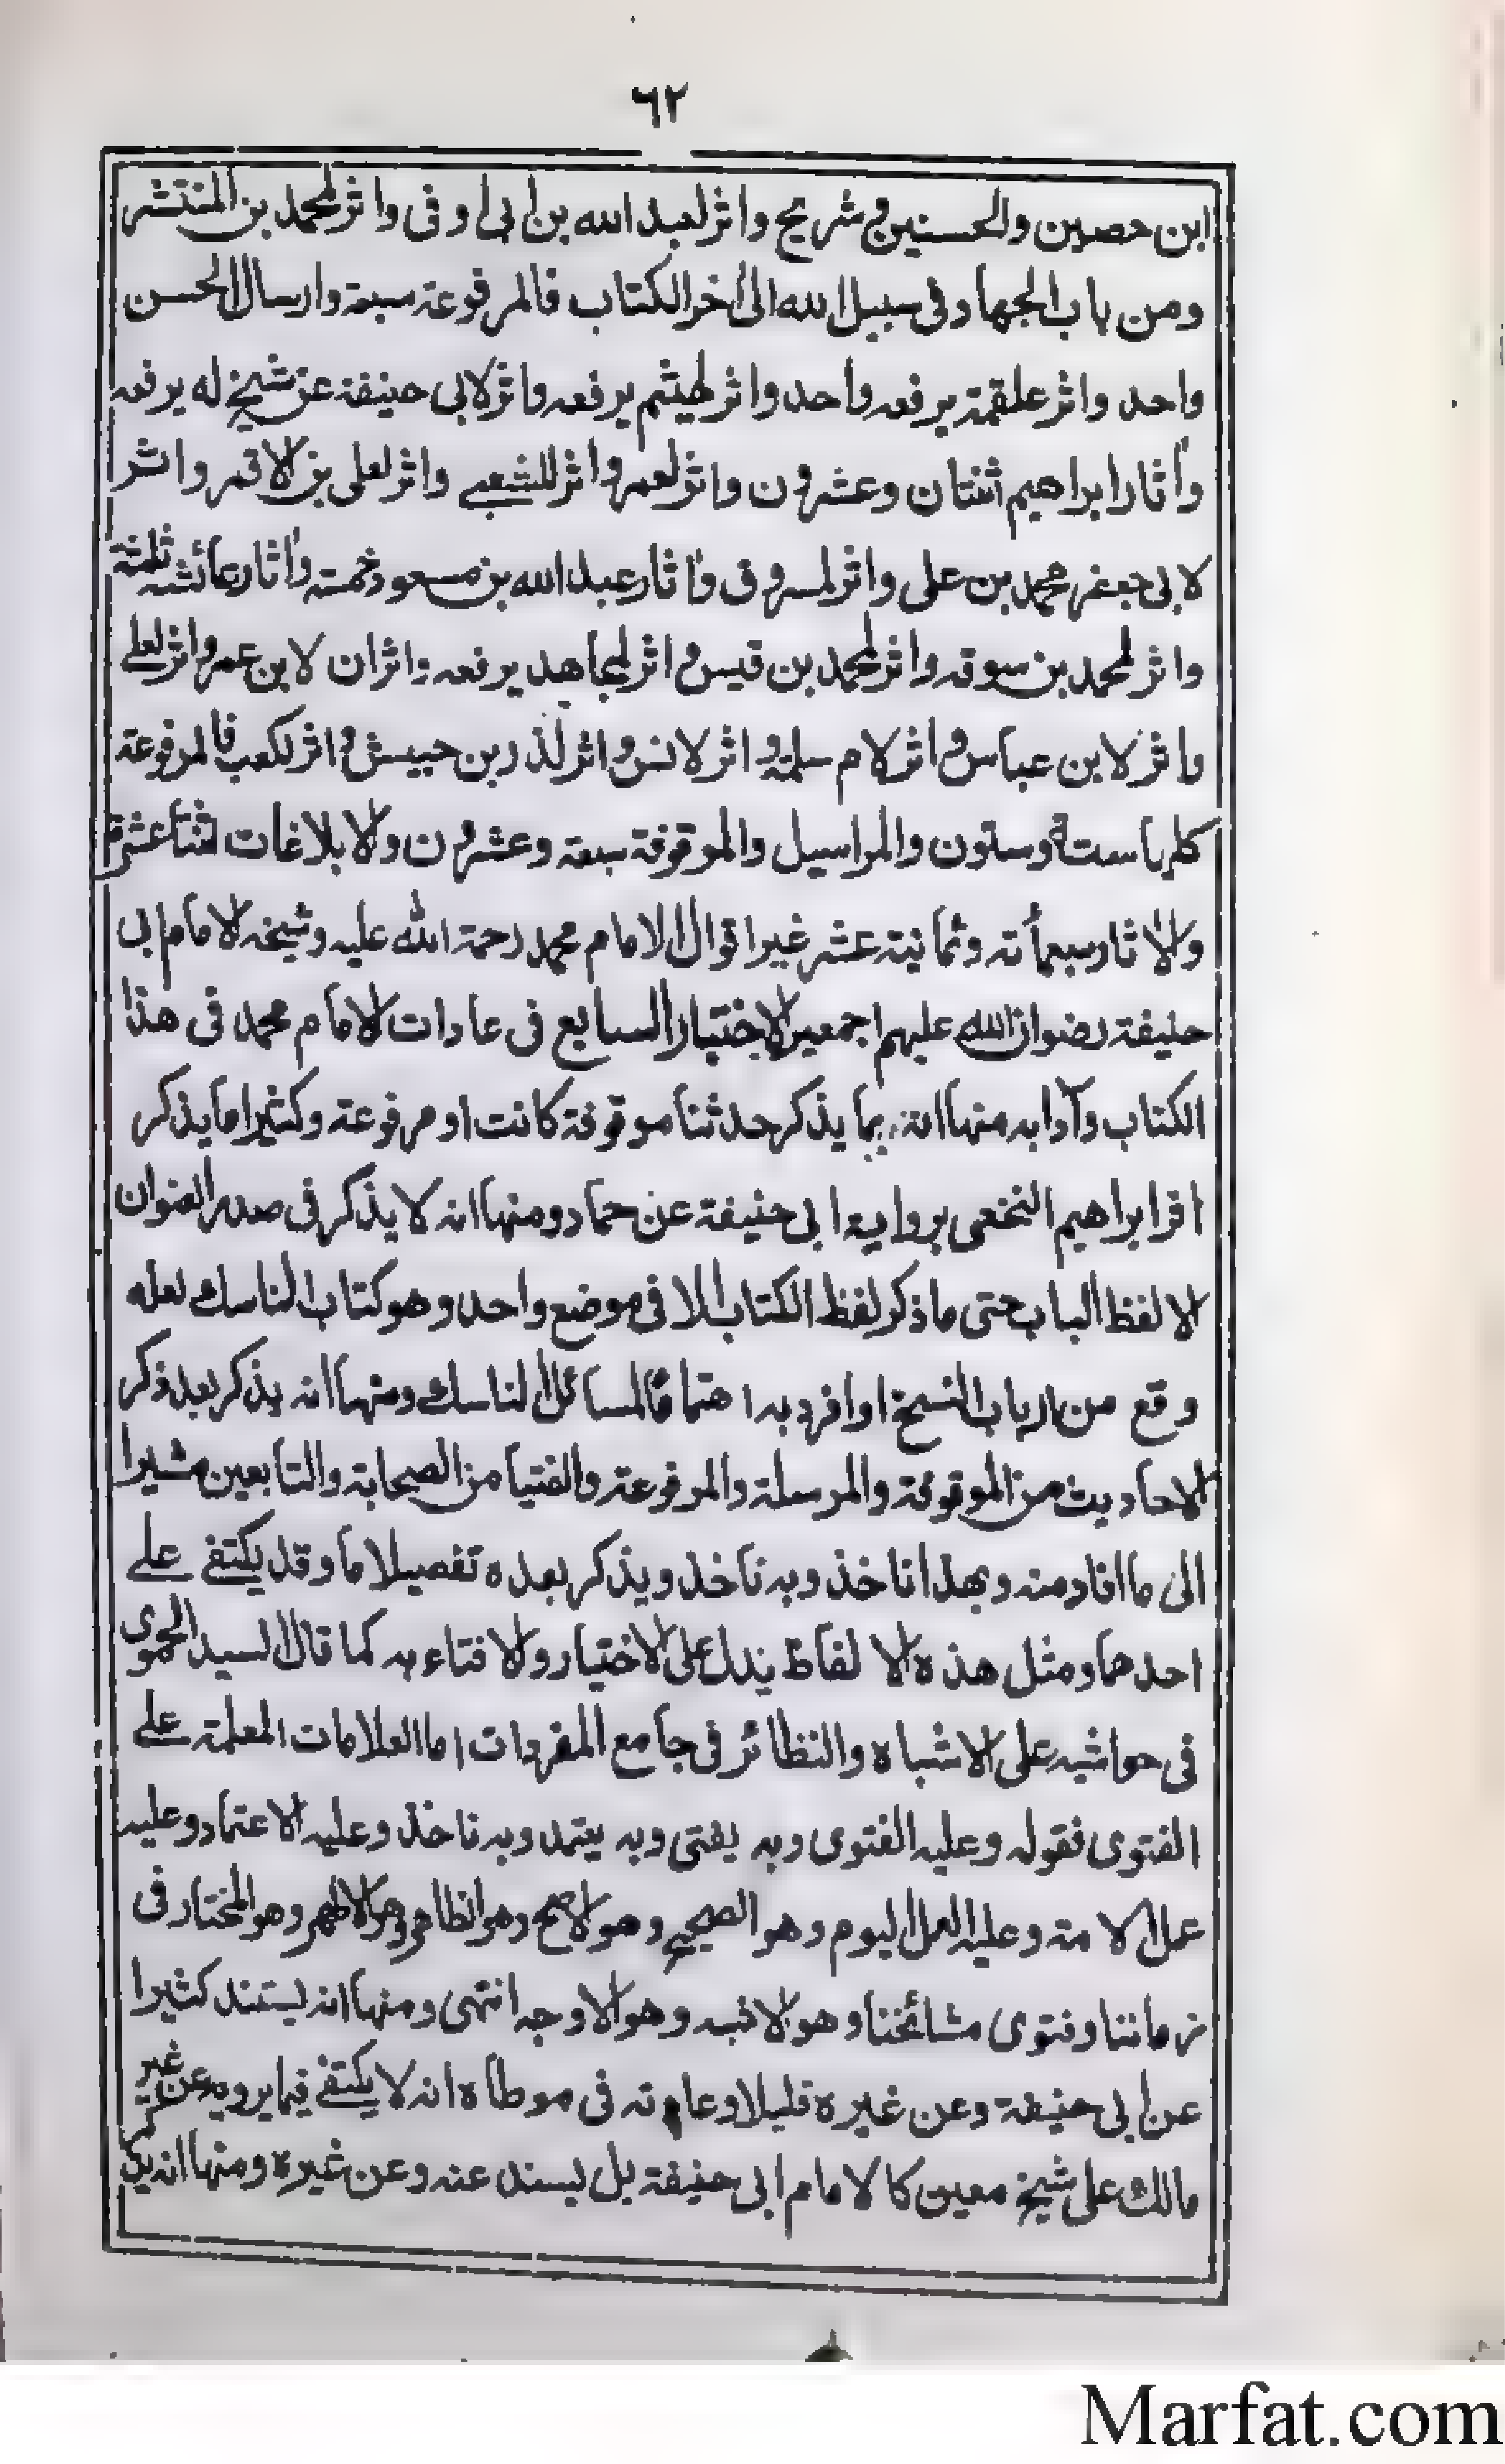 ٦٢
ابن حصين والحسنين و شريح واثر لعبد الله بن ابي اوفى واثر لمحمد بن المنتشر
ومن باب الجهاد في سبيل الله الى أخر الكتاب فالمرفوعة سبعة وارسال الحسن
واحد واثر علقمة يرفعه واحد واثر لهيثم يرفعه واثر لابي حنيفة عن شيخ له يرفعه
وأثار ابراهيم ثنتان وعشرون واثر لعمر واثر للشعبي واثر لعلى بن الاقمر واثر
لابي جعفر محمد بن على واثر لمسروق وأثار عبد الله بن مسعود خمسة وأثار عائشه ثلثة
واثر لمحمد بن سوقه واثر لمحمد بن قيس واثر لمجاهد يرفعه واثران لابن عمر واثر لعلي
واثر لابن عباس واثر لام سلمة و اثر لانس واثر لذر بن حبيش واثر لكعب فالمرفوعة
كلها ستة وستون والمراسيل والموقوفة سبعة وعشرون والابلاغات اثنتا عشرة
والأثار سبعمأته وثمانية عشر غير اقوال الامام محمد رحمة الله عليه وشيخه الامام ابي
حنيفة رضوان الله عليهم اجمعين الاختبار السابع فى عادات الامام محمد فى هذا
الكتاب وآدابه منها انه بما يذكر حدثنا موقوفة كانت او مرفوعة وكثيرا ما يذكر
اثر ابراهيم النخعى برواية ابي حنيفة عن حماد ومنها انه لا يذكر فى صدر العنوان
الا لفظ الباب حتى ما ذكر لفظ الكتاب الا فى موضع واحد وهو كتاب المناسك لعله
وقع من ارباب النسخ او افرد به اهتماما لمسائل المناسك ومنها انه يذكر بعد ذكر
الاحاديث من الموقوفة والمرسلة والمرفوعة والفتيا من الصحابة والتابعين مشيرا
الى ما افاد منه وبهذا ناخذ وبه ناخذ ويذكر بعده تفصيلا ما وقد يكتفے علے
احدهما ومثل هذه الالفاظ يدل على الاختيار والافتاء به كما قال السيد الحموى
فى حواشيه على الاشباه والنظائر فى جامع المفردات اما العلامات المعلمة علے
الفتوى فقوله وعليه الفتوى وبه يفتى وبه يعتمد وبه ناخذ وعليه الاعتماد وعليه
عمل الامة وعليه العمل اليوم وهو الصحيح وهو الاصح وهو الظاهر وهو الاظهر وهو المختار فى
زماننا وفتوى مشائخنا وهو الاشبه وهو الاوجه انتهى ومنها انه يستند كثيرا
عن ابي حنيفة وعن غيره قليلا وعادته فى موطاه انه لا يكتفے فيما يرويه عن غير
مالك على شيخ معين كالامام ابي حنيفة بل يسند عنه وعن غيره ومنها انه يذكر
Marfat.com